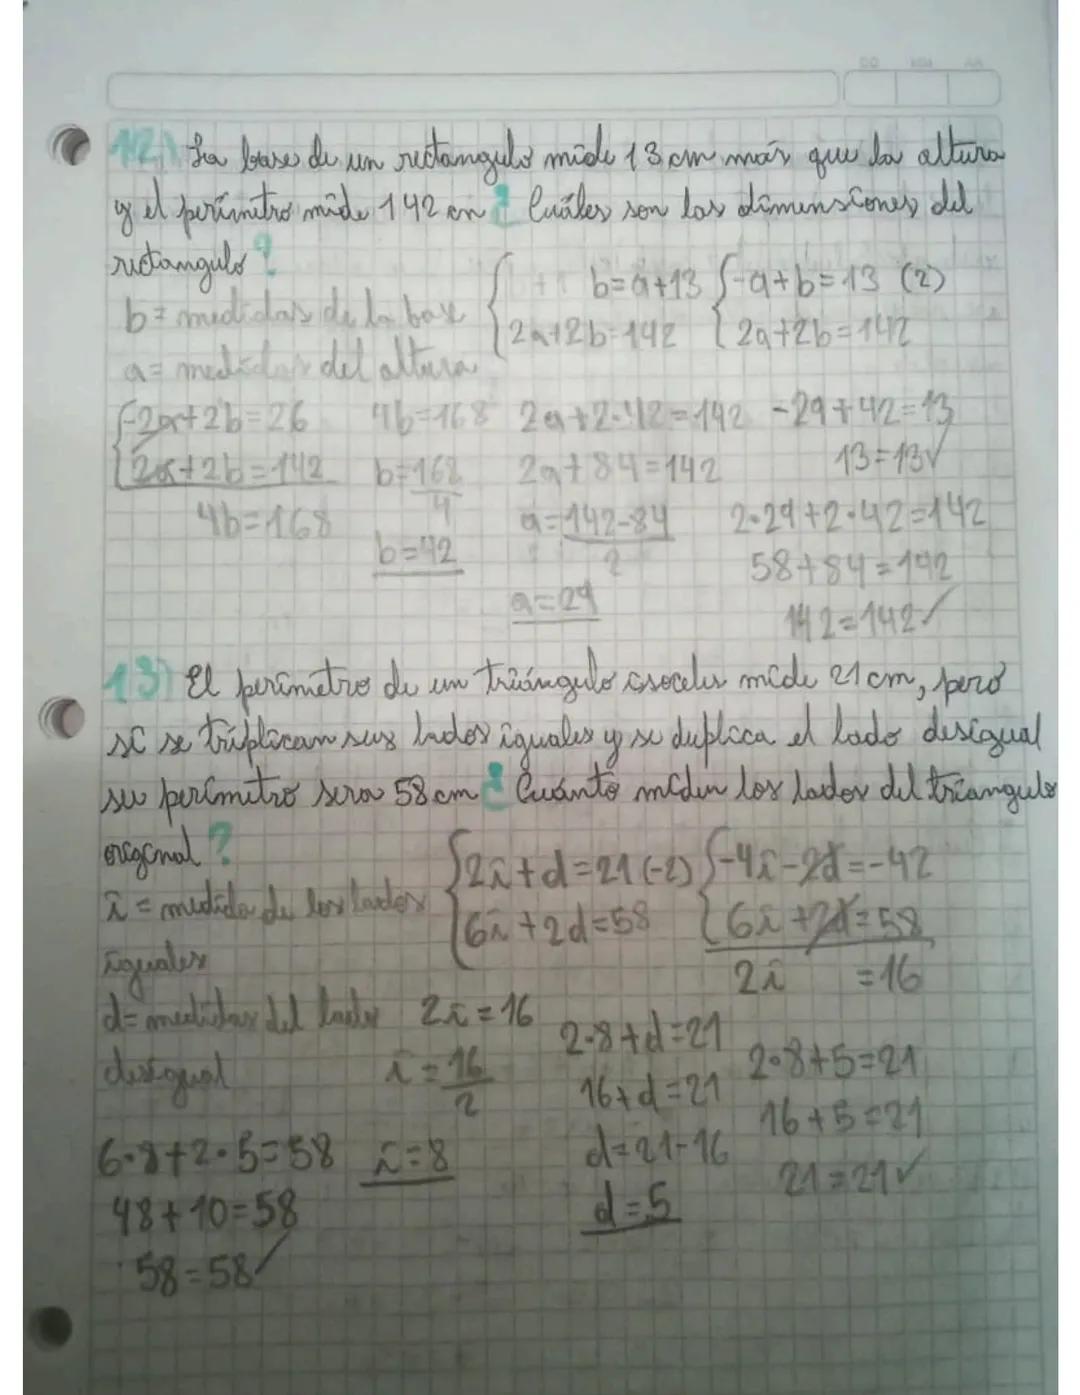 DD MM AA
12) La base de un rectangulo mide 13 cm más que la altura
y el perímitro mide 142 cm ¿Cuáles son las dimensiones del
rectangulo?
b= medidas de la base
a= medidas del altura
{ b=a+13
2a+2b=142
{-a+b=13 (2)
2a+2b=142
{-2a+2b=26
2a+2b=142
4b=168
4b=168
b=168
4
b=42
2a+2·42=142
2a+84=142
a=142-84
2
a=29
-29+42=13
13=13✓
2·29+2·42=142
58+84=142
142=142✓
13) El perímetro de un triángulo isoceles mide 21 cm, pero
si se triplican sus lados iguales y se duplica el lado desigual
su perímetro sera 58 cm ¿Cuánto miden los lados del triangulo
original?
i = medida de los lados
iguales
d= medidas del lado
desigual
{2i+d=21 (-2)
6i+2d=58
{-4i-2d=-42
6i+2d=58
2i =16
2i=16
i=16
2
i=8
2·8+d=21
16+d=21
d=21-16
d=5
2·8+5=21
16+5=21
21=21✓
6·8+2·5=58
48+10=58
58=58✓